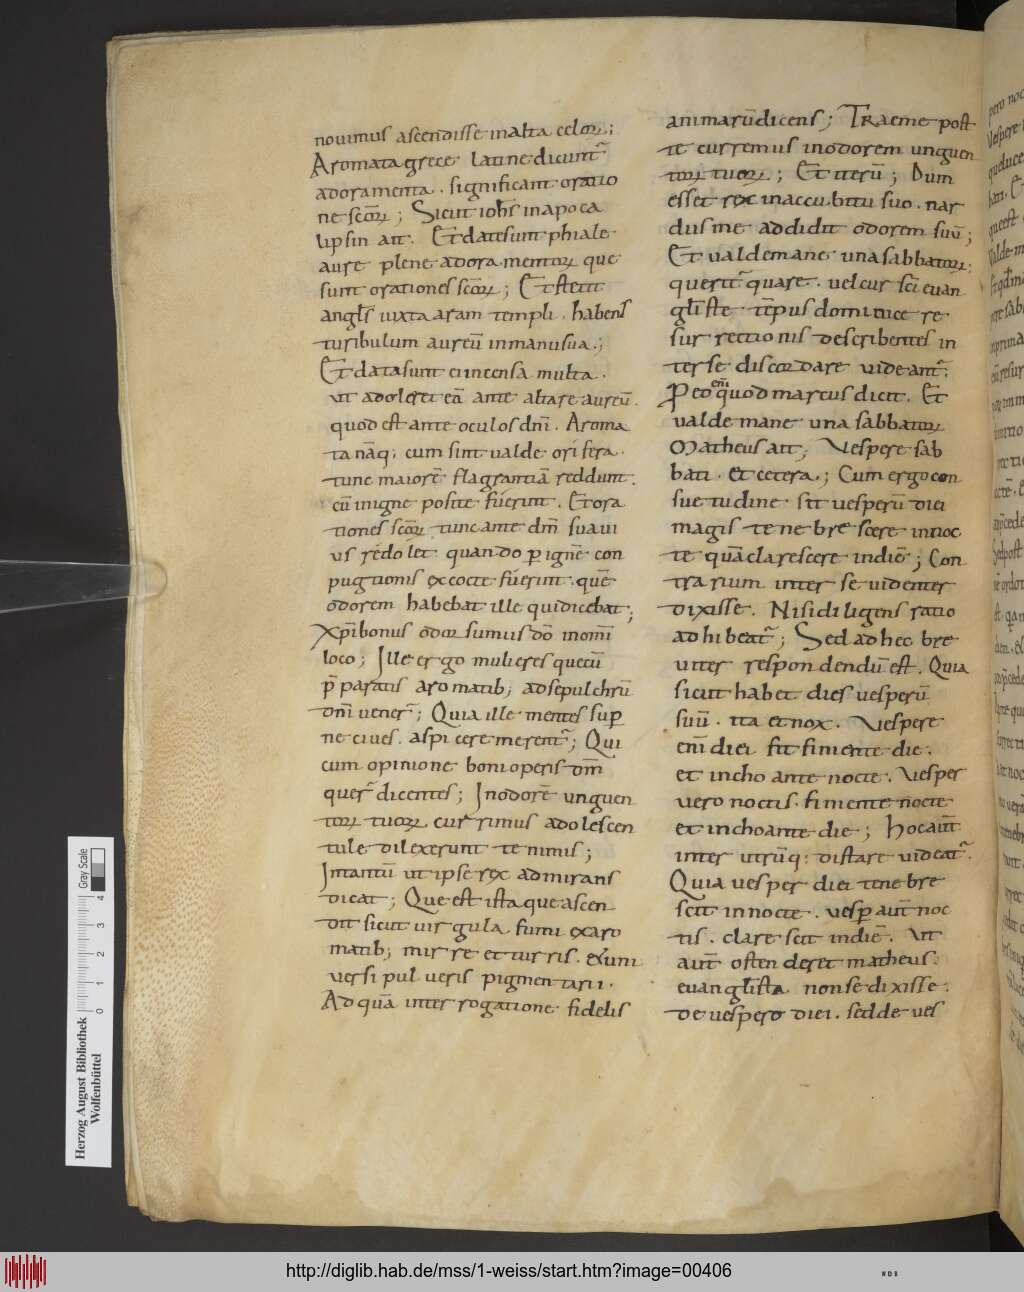 nouimus ascendisse in alta cęlorꝝ;
Aromata grece latine dicunt᷑
adoramenta. significant oratio
ne sc̄orꝝ; Sicut ioh̄s in apoca
lipsin ait. Et datę sunt phialę
aureę plenę adoramentorꝝ que
sunt orationes sc̄orꝝ; Et stetit
angl̄s iuxta aram templi. habens
turibulum aureū in manu sua.;
Et data sunt ei incensa multa.
ut adoleret eā ante altare aureū.
quod est ante oculos dn̄i. Aroma
ta nāq; cum sint ualde orifera.
tunc maiorē flagrantiā reddunt.
cū in igne posite fuerint. Et ora
tiones sc̄orꝝ tunc ante dm̄ suaui
us redolet quando ꝑ ignē con
pugtionis excocte fuerint. quē
odorem habebat ille qui dicebat;
Xp̄i bonus odor sumus dō in omī
loco; Ille ergo mulieres que cū
p̄paratis aromatib; ad sepulchrū
dn̄i uener᷑; Quia ille mentes suꝑ
ne ciues. aspicere merent᷑; Qui
cum opinione boni operis dm̄
quer᷑ dicentes; In odorē unguen
torꝝ tuorꝝ currimus adolescen
tule dilexerunt te nimis;
In tantū ut ipse rex admirans
dicat; Que est ista que ascen
dit sicut uirgula fumi ex aro
matib; mirre et turris. & uni
uersi pulueris pigmentarii.
Ad quā interrogatione fidelis
animarū dicens; Trae me post
te curremus in odorem unguen
torꝝ tuorꝝ; Et iterū; Dum
esset rex in accubitu suo. nar
dus me addidit odorem suū;
Et ualde mane una sabbatorꝝ;
querit᷑ quare. uel cur sc̄i euan
gl̄iste tēpus dominice re
surrectionis describentes in
ter se discordare uideant᷑;
Pro eo enī quod marcus dicit. Et
ualde mane una sabbatorꝝ
Matheus ait; Vespere sab
bati. et cetera.; Cum ergo con
suetudine sit uesperū diei
magis tenebrescere in noc
te quā clarescere in diē; Con
trarium inter se uidenter
dixisse. Nisi diligens ratio
adhibeat᷑; Sed ad hec bre
uiter respondendū est. Quia
sicut habet dies uesperū
suū. ita et nox. Vespere
enī diei fit finiente die.
et inchoante nocte. Vesper
uero noctis. finiente nocte
et inchoante die; Hoc aūt
inter utrūq; distare uideat᷑.
Quia uesper diei tenebre
scit in nocte. uesꝑ aūt noc
tis. clarescit in diē. Vt
aūt ostenderet matheus
euangl̄ista non se dixisse.
de uespero diei. sed de ues
Gray Scale
0 1 2 3 4
Herzog August Bibliothek
Wolfenbüttel
http://diglib.hab.de/mss/1-weiss/start.htm?image=00406